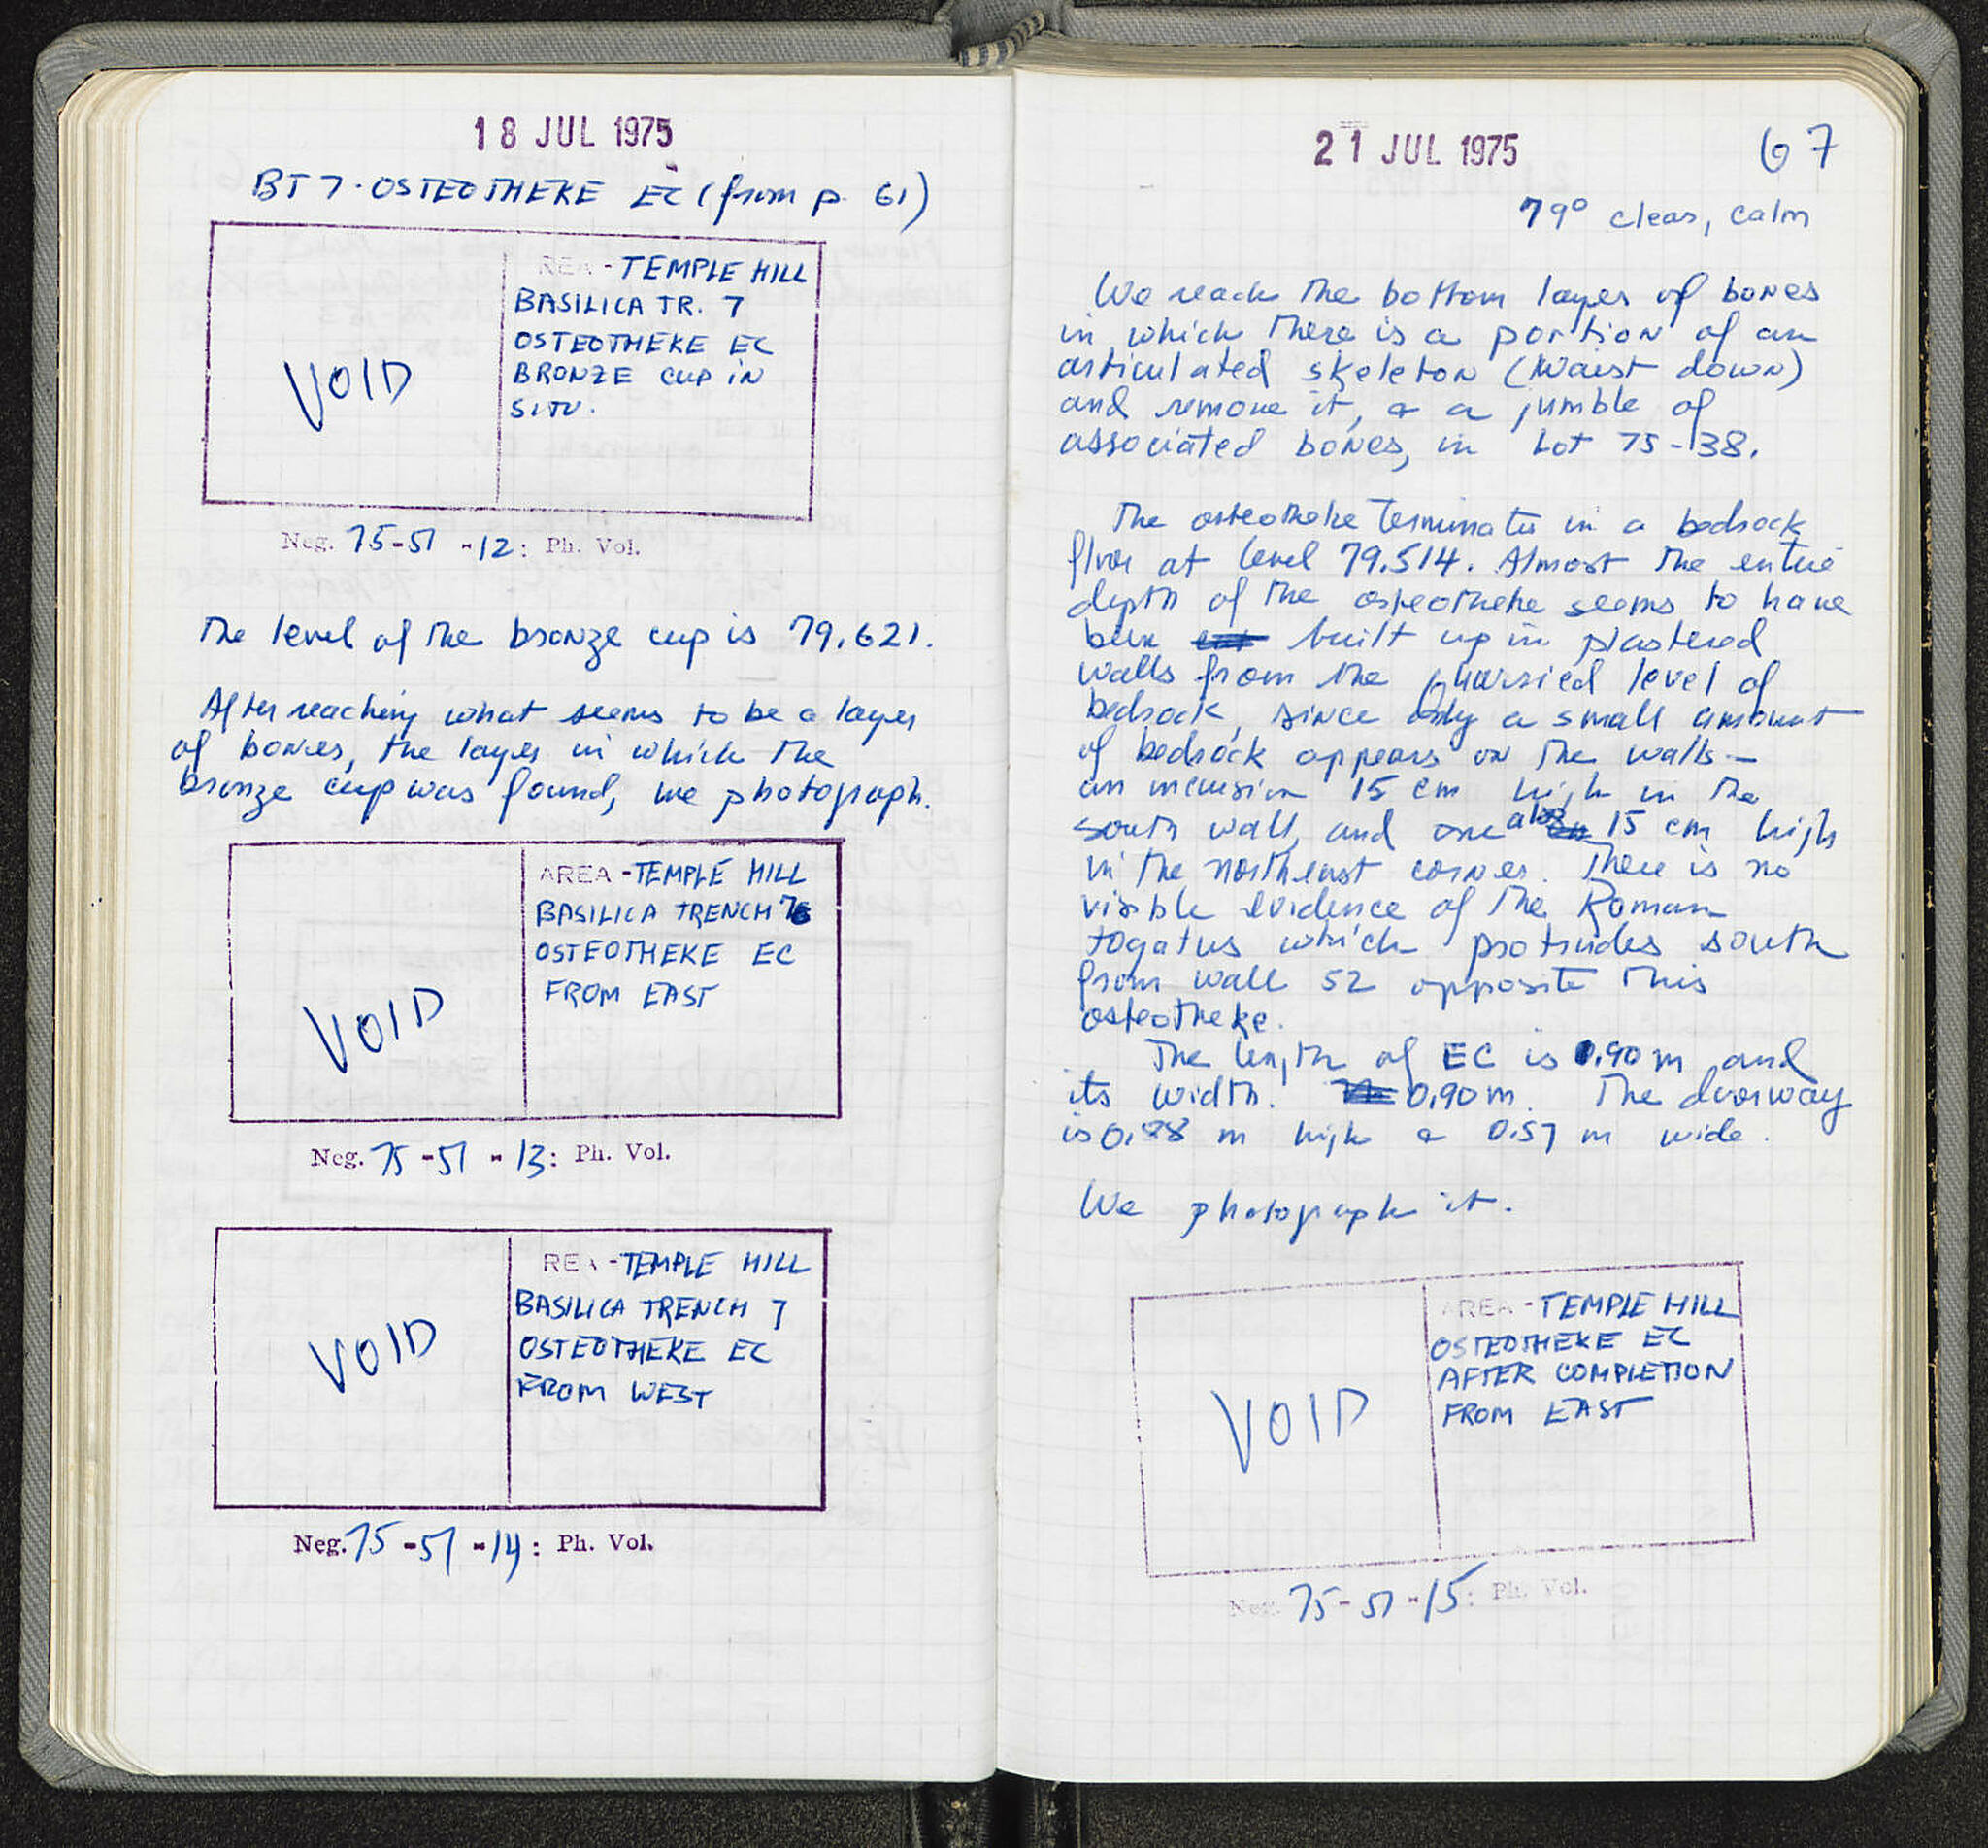 18 JUL 1975
BT 7. OSTEOTHEKE EC (from p. 61)
VOID
REA - TEMPLE HILL
BASILICA TR. 7
OSTEOTHEKE EC
BRONZE CUP IN
SITU.
Neg. 75-51-12: Ph. Vol.
The level of the bronze cup is 79.621.
After reaching what seems to be a layer
of bones, the layer in which the
bronze cup was found, we photograph.
VOID
AREA - TEMPLE HILL
BASILICA TRENCH 7
OSTEOTHEKE EC
FROM EAST
Neg. 75-51-13: Ph. Vol.
VOID
REA - TEMPLE HILL
BASILICA TRENCH 7
OSTEOTHEKE EC
FROM WEST
Neg. 75-51-14: Ph. Vol.
21 JUL 1975
67
79° clear, calm
We reach the bottom layer of bones
in which there is a portion of an
articulated skeleton (waist down)
and remove it, & a jumble of
associated bones, in Lot 75-138.
The osteotheke terminates in a bedrock
floor at level 79.514. Almost the entire
depth of the osteotheke seems to have
been built up in plastered
walls from the quarried level of
bedrock, since only a small amount
of bedrock appears on the walls -
an incursion 15 cm high in the
south wall, and one also 15 cm high
in the northeast corner. There is no
visible evidence of the Roman
togatus which protrudes south
from wall 52 opposite this
osteotheke.
The length of EC is 0.90 m and
its width. 0.90 m. The doorway
is m high & 0.57 m wide.
We photograph it.
VOID
AREA - TEMPLE HILL
OSTEOTHEKE EC
AFTER COMPLETION
FROM EAST
Neg. 75-51-15: Ph. Vol.